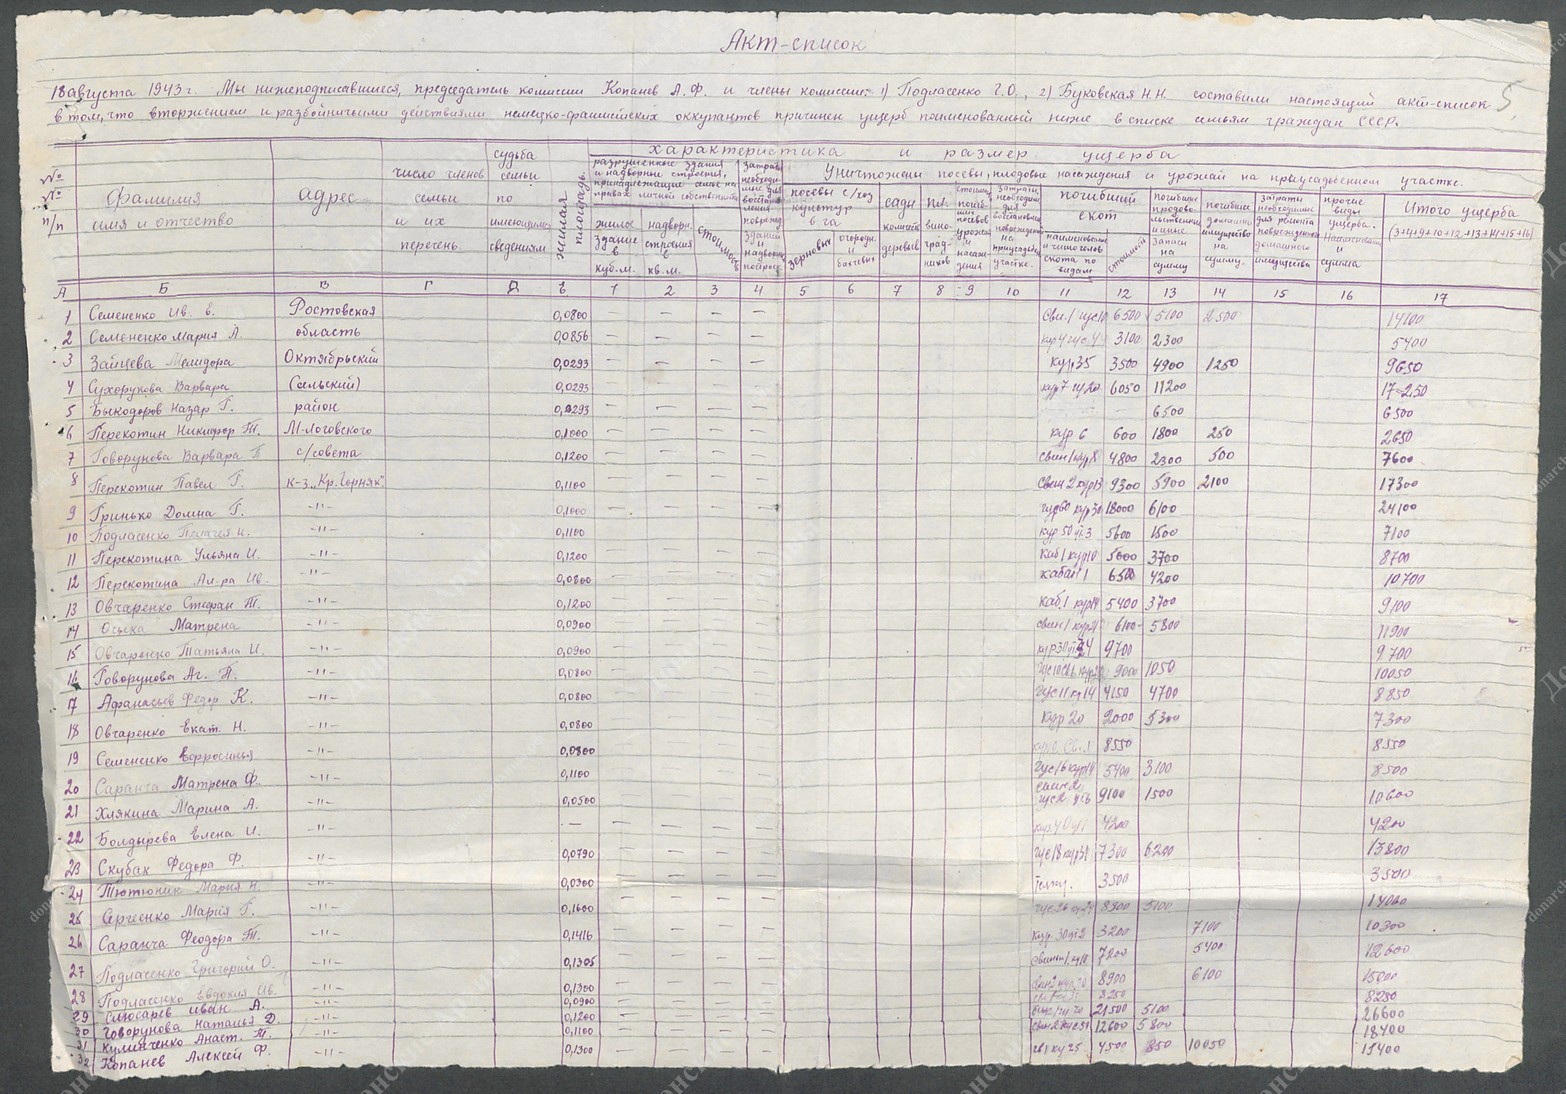 Акт-список
5
18 августа 1943 г. Мы нижеподписавшиеся, председатель комиссии Копанев А.Ф. и члены комиссии: 1) Подласенко Г.О., 2) Буковская Н.Н. составили настоящий акт-список
в том, что вторжением и разбойничьими действиями немецко-фашистских оккупантов причинен ущерб поименованный ниже в списке семьям граждан СССР.
№ № п/п
Фамилия имя и отчество
адрес
число членов семьи и их перечень
судьба семьи по имеющимся сведениям
жилая площадь
характеристика и размер ущерба
разрушенные здания и надворные строения, принадлежащие семье на правах личной собственности
жилое здание в куб.м.
надворн. строения в кв.м.
стоимость
Уничтожены посевы, плодовые насаждения и урожай на приусадебном участке.
посевы с/хоз культур в га
зерновых
огороды и бахчевых
сады колич. деревьев
виноградников
погибший скот
наименование и число голов скота по видам
стоимость
погибшие продовольственные запасы на сумму
погибшее домашн. имущество на сумму.
затраты необходимые для ремонта поврежденного домашнего имущества
прочие виды ущерба. Наименование и сумма
Итого ущерба
(3+4+9+10+12+13+14+15+16)
А Б В Г Д Е 1 2 3 4 5 6 7 8 9 10 11 12 13 14 15 16 17
1 Семененко Ив. Е. Ростовская 0,0800 — — — — 6500 5100 2500 14100
2 Семененко Мария А. область 0,0856 — — — — 3100 2300 5400
3 Зайцева Мелидора Октябрьский 0,0293 — — — — кур 35 3500 4900 1250 9650
4 Сухорукова Варвара (сельский) 0,0293 — — — — 6050 11200 17250
5 Быкодоров Назар Г. район 0,0293 — — — — 6500 6500
6 Перекотин Никифор Т. М-Логовского 0,1000 — — — — кур 6 600 1800 250 2650
7 Говорунова Варвара П с/совета 0,1200 — — — — свин 1 кур 8 4800 2300 500 7600
8 Перекотин Павел Г. к-з „Кр. Горняк" 0,1100 — — — — свин 2 кур 13 9300 5900 2100 17300
9 Гринько Домна Г. -"- 0,1000 — — — — 18000 6100 24100
10 Подласенко Пелагея Н. -"- 0,1100 — — — — 5600 1500 7100
11 Перекотина Ульяна И. -"- 0,1200 — — — — каб 1 кур 10 5000 3700 8700
12 Перекотина Ал-ра Ив. -"- 0,0800 — — — — кабан 1 6500 4200 10700
13 Овчаренко Стефан Т. -"- 0,1200 — — — — каб. 1 кур 14 5400 3700 9100
14 Осыка Матрена -"- 0,0900 — — — — 6100 5800 11900
15 Овчаренко Татьяна И. -"- 0,0900 — — — — 9700 9700
16 Говорунова Аг. П. -"- 0,0800 — — — — 9000 1050 10050
17 Афанасьев Федор К. -"- 0,0800 — — — — гус 11 кур 14 4150 4700 8850
18 Овчаренко Екат. Н. -"- 0,0800 — — — — кур 20 2000 5300 7300
19 Семененко Евфросинья -"- 0,0800 — — — — 8550 8550
20 Саранча Матрена Ф. -"- 0,1100 — — — — гус 16 кур 14 5400 3100 8500
21 Хлякина Марина А. -"- 0,0500 — — — — 9100 1500 10600
22 Болдырева Елена И. -"- — — — — — 4200 4200
23 Скубак Федора Ф. -"- 0,0790 — — — — гус 18 кур 31 7300 6200 13800
24 Тютюник Мария Н. -"- 0,0300 — — — — 3500 3500
25 Сергеенко Мария Г. -"- 0,1600 — — — — 8500 5100
26 Саранча Феодора Т. -"- 0,1416 — — — — 3200 7100 10300
27 Подласенко Григорий О. -"- 0,1305 — — — — 7200 5400 12600
28 Подласенко Евдокия Ив. -"- 0,1300 — — — — 8900 6100 15000
29 Слюсарев Иван А. -"- 0,0900 — — — — 8250
30 Говорунова Наталья Д. -"- 0,1200 — — — — 21500 5100 26600
31 Кулинченко Анаст. Т. -"- 0,1100 — — — — 12600 5800 18400
32 Копанев Алексей Ф. -"- 0,1300 — — — — 4500 850 10050 15400